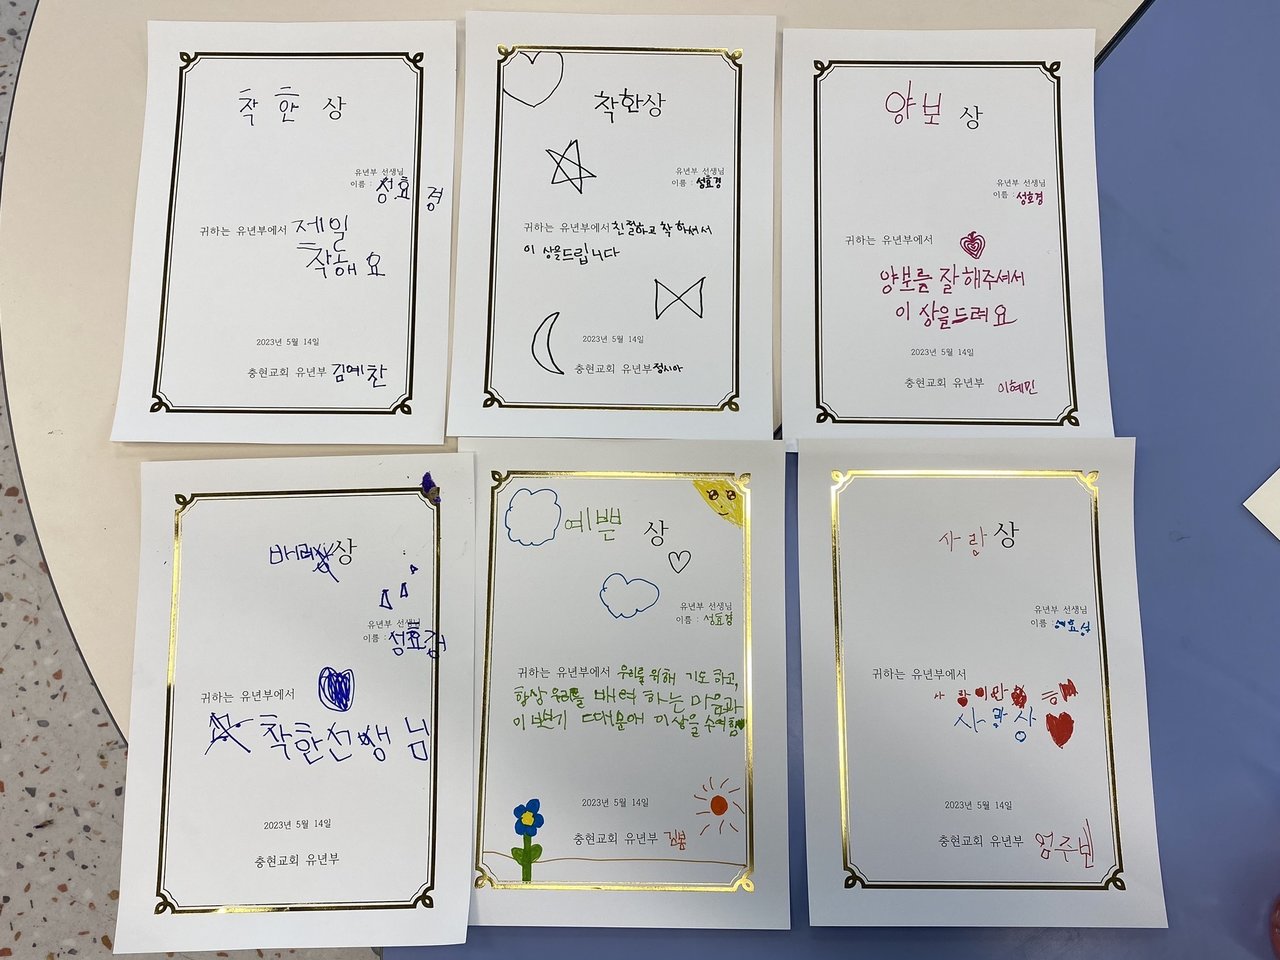 착한 상
유년부 선생님
이름 : 성효경
귀하는 유년부에서 제일
착해요
2023년 5월 14일
충현교회 유년부 김예찬
착한상
유년부 선생님
이름 : 성효경
귀하는 유년부에서 친절하고 착하셔서
이 상을드립니다
2023년 5월 14일
충현교회 유년부 정시아
양보 상
유년부 선생님
이름 : 성효경
귀하는 유년부에서
양보를 잘해주셔서
이 상을드려요
2023년 5월 14일
충현교회 유년부 이혜민
배려 상
유년부 선생님
이름 : 성효경
귀하는 유년부에서
착한선생님
2023년 5월 14일
충현교회 유년부
예쁜 상
유년부 선생님
이름 : 성효경
귀하는 유년부에서 우리를 위해 기도하고,
항상 우리를 배여하는 마음과
이쁘기 때문에 이상을 수여함
2023년 5월 14일
충현교회 유년부
사랑 상
유년부 선생님
이름 :
귀하는 유년부에서
사랑상
2023년 5월 14일
충현교회 유년부 엄주빈